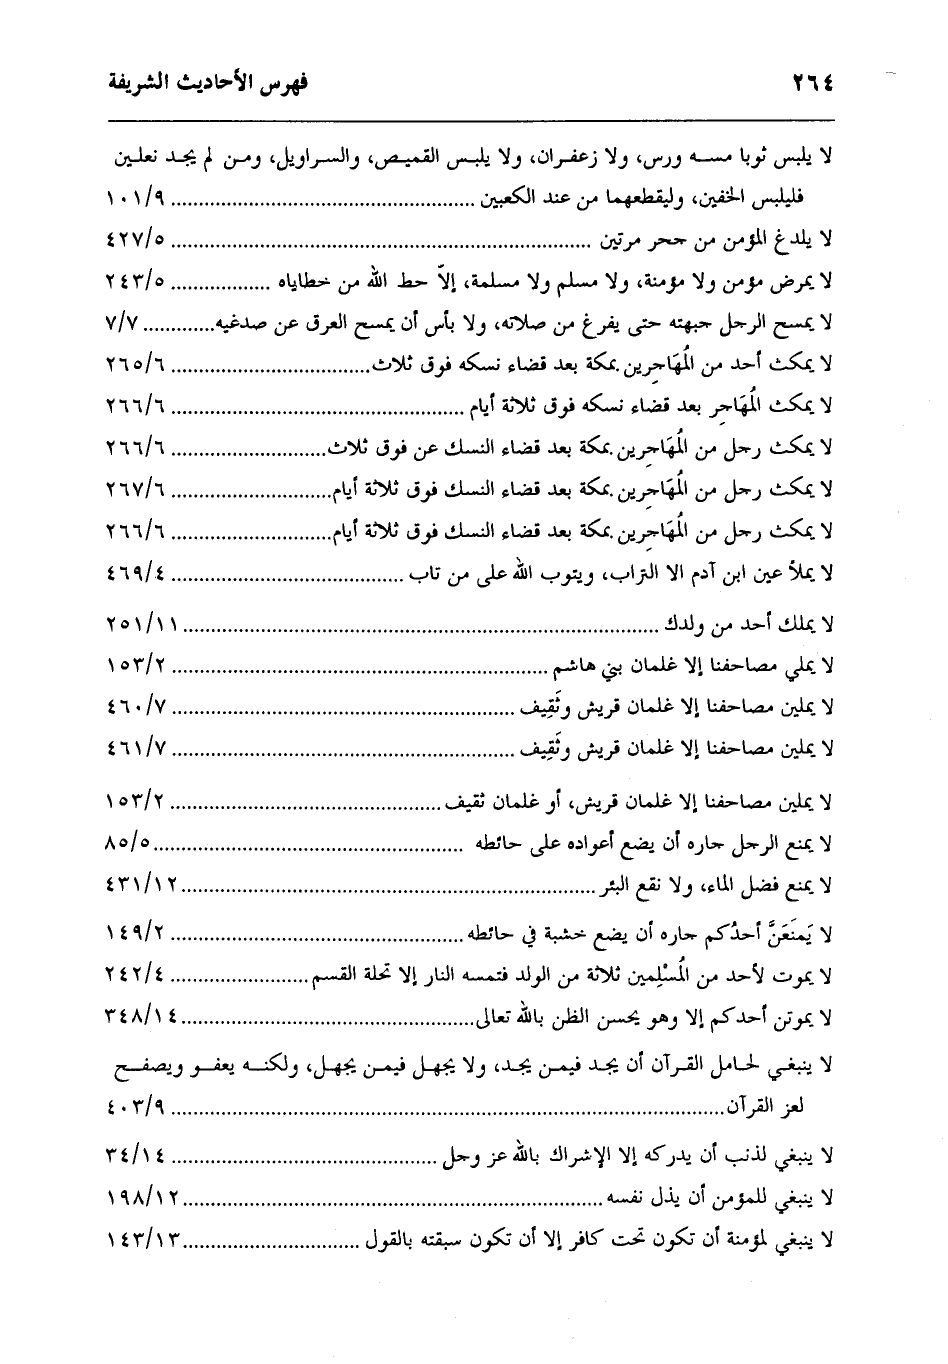 ٢٦٤ فهرس الأحاديث الشريفة
لا يلبس ثوبا مسه ورس، ولا زعفران، ولا يلبس القميص، والسراويل، ومن لم يجد نعلين
فليلبس الخفين، وليقطعهما من عند الكعبين ........ ١٠١/٩
لا يلدغ المؤمن من جحر مرتين ........ ٤٢٧/٥
لا يمرض مؤمن ولا مؤمنة، ولا مسلم ولا مسلمة، إلاّ حط الله من خطاياه ........ ٢٤٣/٥
لا يمسح الرجل جبهته حتى يفرغ من صلاته، ولا بأس أن يمسح العرق عن صدغيه ........ ٧/٧
لا يمكث أحد من المُهَاجِرين بمكة بعد قضاء نسكه فوق ثلاث ........ ٢٦٥/٦
لا يمكث المُهَاجِر بعد قضاء نسكه فوق ثلاثة أيام ........ ٢٦٦/٦
لا يمكث رجل من المُهَاجِرين بمكة بعد قضاء النسك عن فوق ثلاث ........ ٢٦٦/٦
لا يمكث رجل من المُهَاجِرين بمكة بعد قضاء النسك فوق ثلاثة أيام ........ ٢٦٧/٦
لا يمكث رجل من المُهَاجِرين بمكة بعد قضاء النسك فوق ثلاثة أيام ........ ٢٦٦/٦
لا يملأ عين ابن آدم الا التراب، ويتوب الله على من تاب ........ ٤٦٩/٤
لا يملك أحد من ولدك ........ ٢٥١/١١
لا يملي مصاحفنا إلا غلمان بني هاشم ........ ١٥٣/٢
لا يملين مصاحفنا إلا غلمان قريش وثَقِيف ........ ٤٦٠/٧
لا يملين مصاحفنا إلا غلمان قريش وثَقِيف ........ ٤٦١/٧
لا يملين مصاحفنا إلا غلمان قريش، أو غلمان ثقيف ........ ١٥٣/٢
لا يمنع الرجل جاره أن يضع أعواده على حائطه ........ ٨٥/٥
لا يمنع فضل الماء، ولا نقع البئر ........ ٤٣١/١٢
لا يَمنَعَنَّ أحدُكم جاره أن يضع خشبة في حائطه ........ ١٤٩/٢
لا يموت لأحد من المُسْلِمين ثلاثة من الولد فتمسه النار إلا تحلة القسم ........ ٢٤٢/٤
لا يموتن أحدكم إلا وهو يحسن الظن بالله تعالى ........ ٣٤٨/١٤
لا ينبغي لحامل القرآن أن يجد فيمن يجد، ولا يجهل فيمن يجهل، ولكنه يعفو ويصفح
لعز القرآن ........ ٤٠٣/٩
لا ينبغي لذنب أن يدركه إلا الإشراك بالله عز وجل ........ ٣٤/١٤
لا ينبغي للمؤمن أن يذل نفسه ........ ١٩٨/١٢
لا ينبغي لمؤمنة أن تكون تحت كافر إلا أن تكون سبقته بالقول ........ ١٤٣/١٣